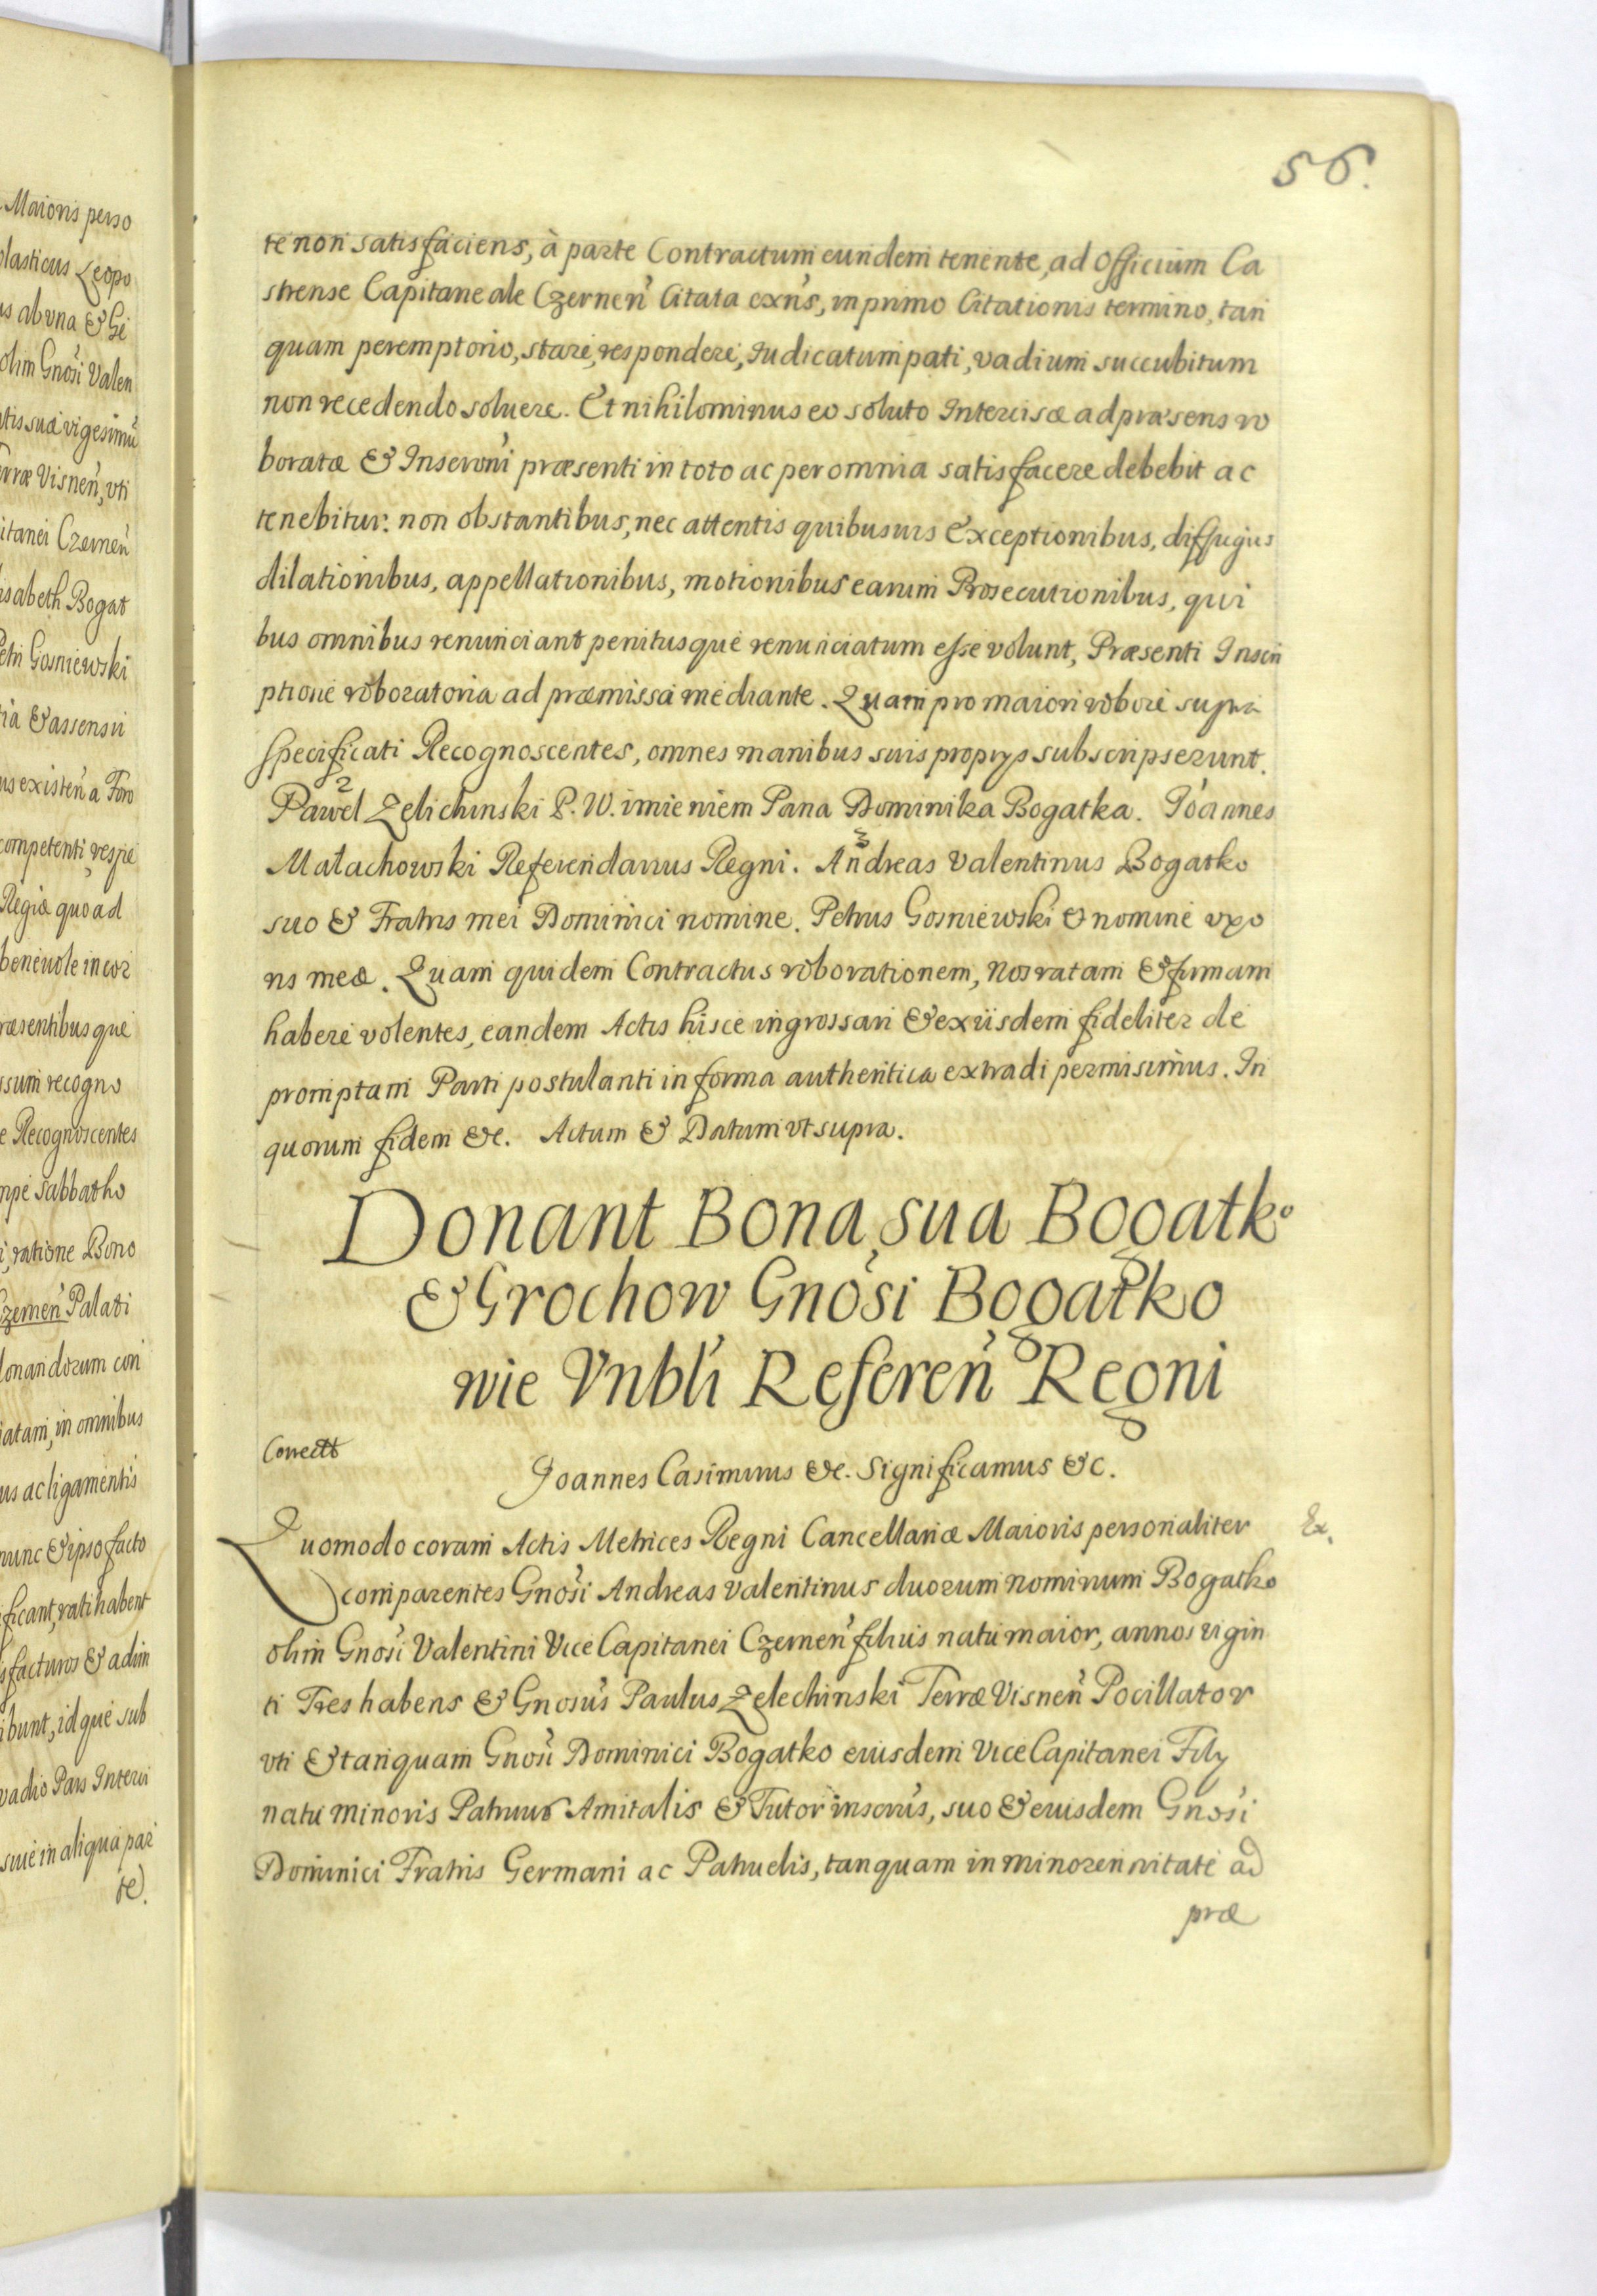 Maioris perso
lasticus Leopo
s ab vna & Ge
olim Gnosi Valen
tis suæ vigesimũ
rræ Visneñ, vti
itanei Czerneñ
isabeth Bogat
etri Gosniewski
ia & assensu
us existeñ a Foro
competenti, respe
Regiæ quo ad
beneuole incor
ræsentibusque
ssum recogno
e Recognoscentes
mpe Sabbatho
i, ratione Bono
Czerneñ Palati
donandorum con
iatam, in omnibus
us ac ligamentis
nunc & ipso facto
ificant, ratihabent
sfacturos & adim
ibunt, idque sub
vadio Pars Interci
siue in aliqua par
te.
56.
te non satisfaciens, à parte Contractum eundem tenente, ad Officium Ca
strense Capitaneale Czerneñ Citata exñs, in primo Citationis termino, tan
quam peremptorio, stare, respondere, Iudicatum pati, vadium succubitum
non recedendo soluere. Et nihilominus eo soluto Intercisæ ad præsens ro
boratæ & Inscroni præsenti in toto ac per omnia satisfacere debebit ac
tenebitur: non obstantibus, nec attentis quibusuis Exceptionibus, diffugiis
dilationibus, appellationibus, motionibus earum Prosecutionibus, qui
bus omnibus renunciant penitusque renunciatum esse volunt, Præsenti Inscri
ptione roboratoria ad præmissa mediante. Quam pro maiori robore supra
specificati Recognoscentes, omnes manibus suis proprys subscripserunt.
Paweł Zelichinski P. W. imieniem Pana Dominika Bogatka. Ioannes
Małachowski Referendarius Regni. Andreas Valentinus Bogatko
suo & Fratris mei Dominici nomine. Petrus Gosniewski & nomine vxo
ris meæ. Quam quidem Contractus roborationem, nos ratam & firmam
habere volentes, eandem Actis hisce ingrossari & ex iisdem fideliter de
promptam Parti postulanti in forma authentica extradi permisimus. In
quorum fidem &c. Actum & Datum vt supra.
Donant Bona sua Bogatko
& Grochow Gnosi Bogatko
wie Vnbli Refereñ Regni
Correct
Ioannes Casimirus &c. Significamus &c.
Quomodo coram Actis Metrices Regni Cancellariæ Maioris personaliter
Ex.
comparentes Gnosi Andreas Valentinus duorum nominum Bogatko
olim Gnosi Valentini Vice Capitanei Czerneñ filius natu maior, annos vigin
ti Tres habens & Gnosus Paulus Zelechinski Terræ Visneñ Pocillator
vti & tanquam Gnosi Dominici Bogatko eiusdem Vice Capitanei Fily
natu minoris Patruus Amitalis & Tutor inscrus, suo & eiusdem Gnosi
Dominici Fratris Germani ac Patruelis, tanquam in minorennitate ad
præ